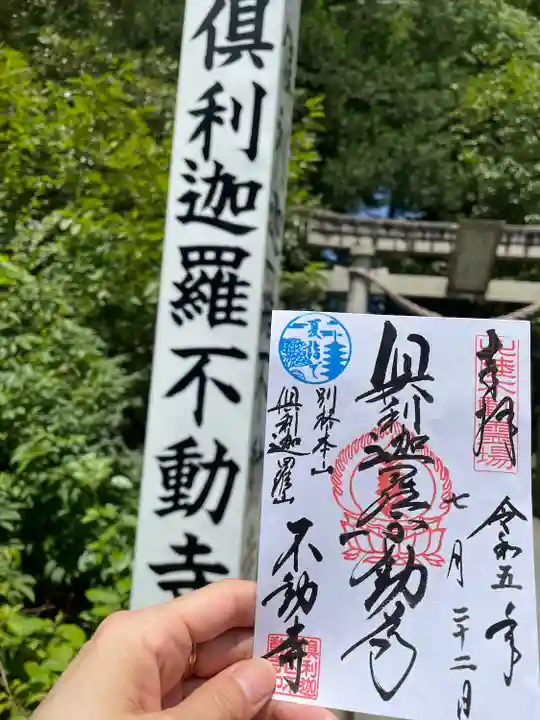 倶利迦羅不動寺
奉拝
令和五年
七月二十二日
倶利迦羅不動尊
夏詣
別格本山
倶利迦羅山
不動寺